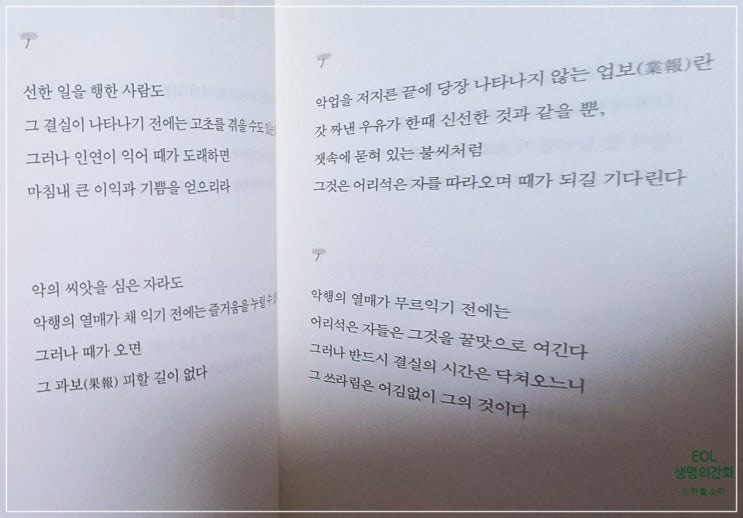 선한 일을 행한 사람도
그 결실이 나타나기 전에는 고초를 겪을 수도 있는
그러나 인연이 익어 때가 도래하면
마침내 큰 이익과 기쁨을 얻으리라
악의 씨앗을 심은 자라도
악행의 열매가 채 익기 전에는 즐거움을 누릴 수
그러나 때가 오면
그 과보(果報) 피할 길이 없다
악업을 저지른 끝에 당장 나타나지 않는 업보(業報)란
갓 짜낸 우유가 한때 신선한 것과 같을 뿐,
잿속에 묻혀 있는 불씨처럼
그것은 어리석은 자를 따라오며 때가 되길 기다린다
악행의 열매가 무르익기 전에는
어리석은 자들은 그것을 꿀맛으로 여긴다
그러나 반드시 결실의 시간은 닥쳐오느니
그 쓰라림은 어김없이 그의 것이다
EOL
생명의잔화